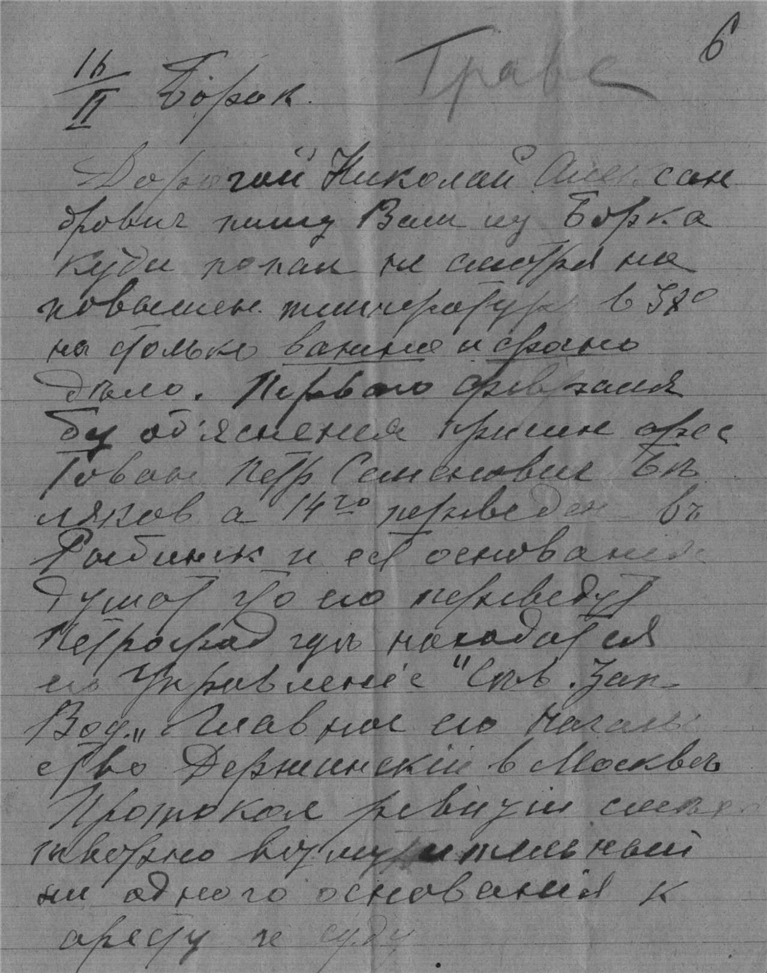 6
16/II Борок.
Дорогой Николай Алексан
дрович пишу Вам из Борка
куда попал не смотря на
повышен. температуру в 38°
на столько важное и срочно
дѣло. Первого февраля
без объясненія причин арес
тован Петр Семенович Бѣ
ляков а 14го переведен въ
Рыбинск и есть основания
думат что его переведут
Петроград гдѣ находятся
его Управленіе "Сѣв. Зап
Вод." Главное его началь
ство Держинскій в Москвѣ
Протокол ревизіи
возмутительный
ни одного основанія к
аресту и суду